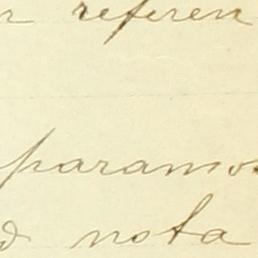 referen
paramos
nota